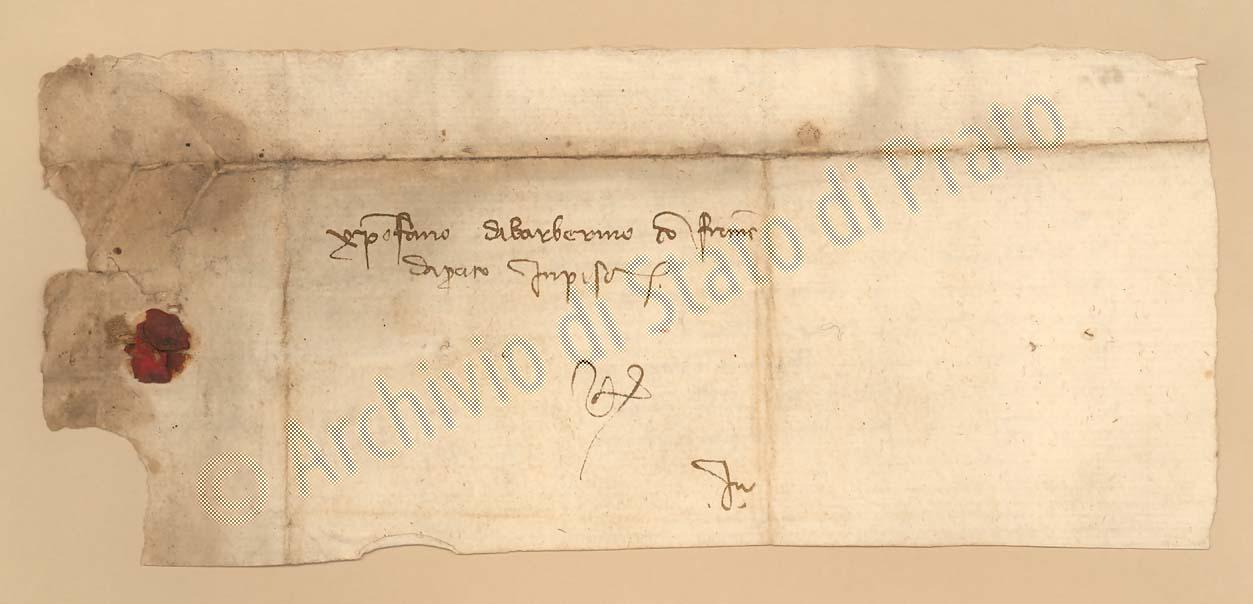 xpofano dabarberino
daprato In pisa
In
© Archivio di Stato di Prato